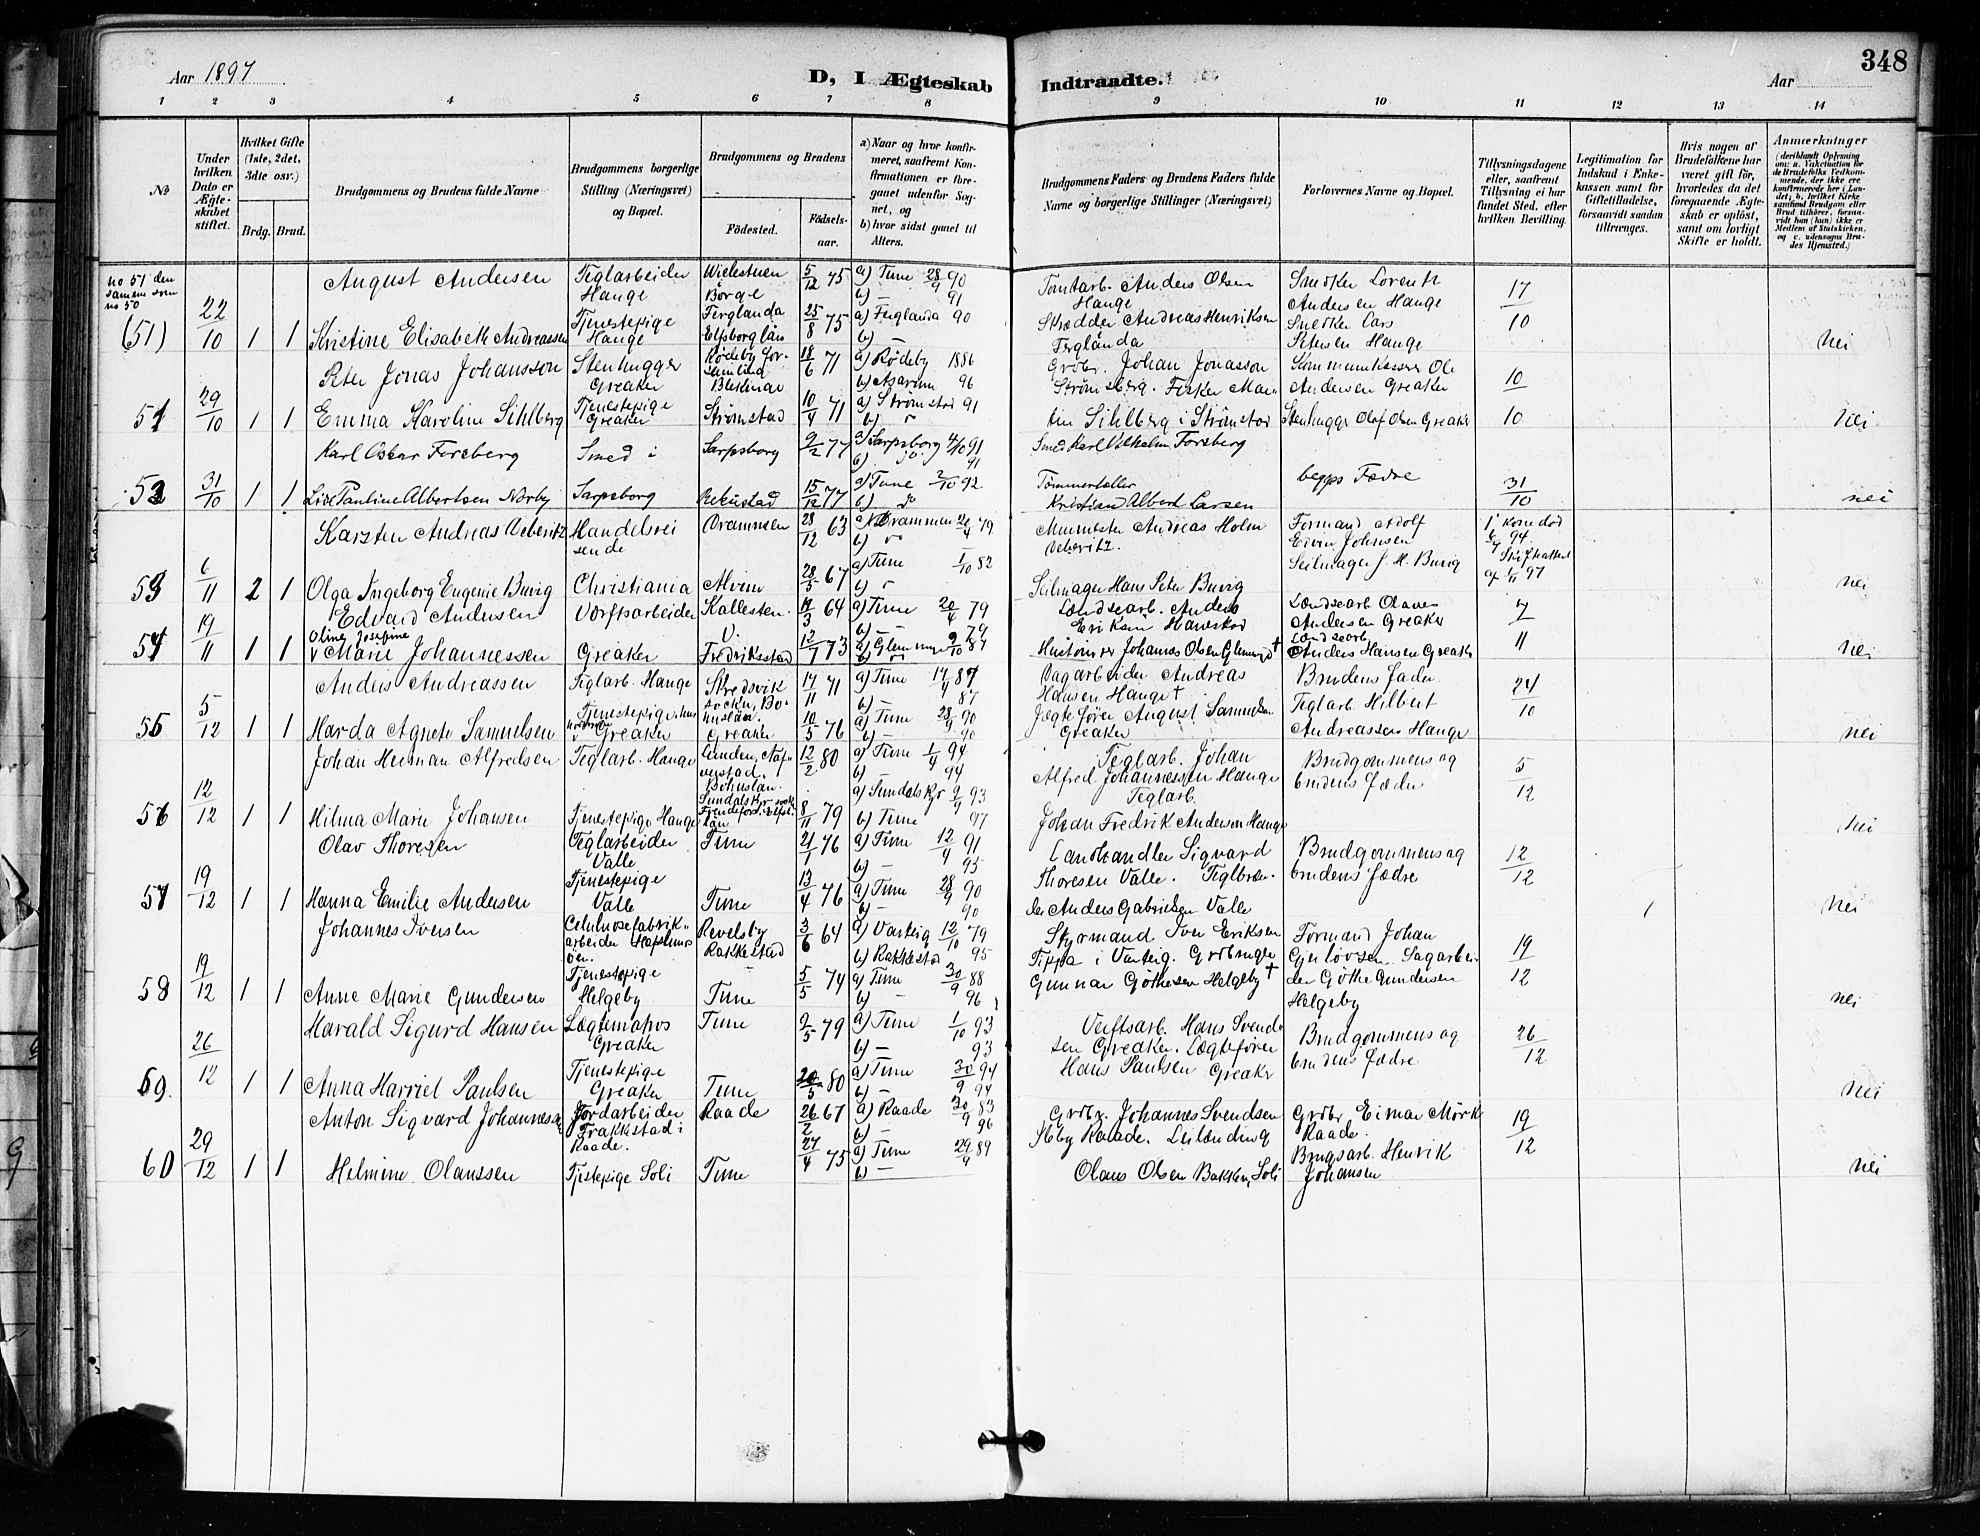 348
Aar 1897
D, I Ægteskab Indtraadte.
Aar
1 2 3 4 5 6 7 8 9 10 11 12 13 14
No
Under hvilken Dato er Ægteskabet stiftet.
Hvilket Gifte (1ste, 2det, 3die osv.)
Brdg. Brud.
Brudgommens og Brudens fulde Navne
Brudgommens borgerlige Stilling (Næringsvei) og Bopæl.
Brudgommens og Brudens
Fødested.
Fødselsaar.
a) Naar og hvor konfirmeret, saafremt Konfirmationen er foregaaet udenfor Sognet, og
b) hvor sidst gaaet til Alters.
Brudgommens Faders og Brudens Faders fulde Navne og borgerlige Stillinger (Næringsvei)
Forlovernes Navne og Bopæl.
Tillysningsdagene eller, saafremt Tillysning ei har fundet Sted, efter hvilken Bevilling.
Legitimation for Indskud i Enkekassen samt for Giftetilladelse, forsaavidt saadan tiltrænges.
Hvis nogen af Brudefolkene har været gift før, hvorledes da det foregaaende Ægteskab er opløst, samt om lovligt Skifte er holdt.
Anmerkninger
(deriblandt Oplysning om: a. Vakcination for de Brudefolks Vedkommende, der ikke ere konfirmerede her i Landet; b. hvilket Kirkesamfund Brudgom eller Brud tilhører, forsaavidt han (hun) ikke er Medlem af Statskirken, og c. udensogns Brudes Hjemsted.)
no 51 den samme som no 50
August Andersen Teglarbeider Hauge Børge 5/12 75 a) Tune 28/9 90 b) — 91 Tomtarb. Anders Olsen Hauge Snedker Lorentz Andersen Hauge 17
(51) 22/10 1 1 Kristine Elisabeth Andreassen Tjenestepige Hauge Ferglanda Elfsborg län 25/8 75 a) Ferglanda 90 b) — Skrædder Andreas Henriksen Ferglanda Snedker Lars Petersen Hauge 10 Nei
Peter Jonas Johansson Stenhugger Greaker Rødeby forsamling Blekinge 18/6 71 a) Rødeby 1886 b) Asarum 96 Grdbr. Johan Jonasson Kommunekasserer Ole Andersen Greaker 10
51 29/10 1 1 Emma Karoline Sihlberg Tjenestepige Greaker Strømstad 10/4 71 a) Strømstad 91 b) Strømsberg. Fisker Martin Sihlberg i Strømstad Stenhugger Olaf Olsen Greaker 10 Nei
Karl Oscar Forsberg Smed i Sarpsborg 9/2 77 a) Sarpsborg 4/10 91 b) do 91 Smed Karl Vilhelm Forsberg
52 31/10 1 1 Pauline Albertsen Norby Sarpsborg 15/12 77 a) Tune 2/10 92 b) do Tømmertæller Kristian Albert Larsen begges Fædre 31/10 nei
Karsten Andreas Ueberitz Handelsreisende Drammen 28/12 63 a) Drammen 20/4 79 b) Andreas Holm Ueberitz. Formand Adolf Eivin Johnsen
53 6/11 2 1 Olga Ingeborg Eugenie Buvig Christiania Alvim 28/5 67 a) Tune 1/10 82 b) Seilmager Hans Peter Buvig Seilmager J. H. Buvig nei
Edvard Andersen Værftsarbeider Kallesten. 17/3 64 a) Tune 20/4 79 b) — 79 Lændsearb. Anders Eriksen Lændsearb Olaves Andersen Greaker 7
54 19/11 1 1 Oline Josefine Marie Johannessen Greaker V. Fredriksstad 12/1 73 a) Glemminge 9/10 87 b) Johannes Olsen Glemminge † Lændsearb. Anders Hansen Greaker 11 Nei
Anders Andreassen Teglarb. Hauge Skredsvik socken, Bohuslän. 17/11 71 a) Tune 17/4 87 b) — 87 Dagarbeider Andreas Hansen Hauge † Brudens Fader 24
55 5/12 1 1 Harda Agnete Samuelsen Tjenestepige Greaker Greaker 10/5 76 a) Tune 28/9 90 b) — 90 Jægtefører August Samuelsen Greaker Teglarb. Hilbert Andreassen Hauge 10 nei
Johan Herman Alfredsen Teglarb. Hauge Bohuslän. 12/2 80 a) Tune 1/4 94 b) — 94 Teglarb. Johan Alfred Johannessen Hauge Brudgommens og brudens Fædre 5
56 12/12 1 1 Hilma Marie Johansen Tjenestepige Hauge 8/11 79 a) Sundals Kyr 9/9 93 b) Tune 97 Teglarb. Johan Fredrik Andersen Hauge 12 Nei
Olav Thoresen Teglarbeider Valle Tune 21/1 76 a) Tune 12/4 91 b) — 95 Landhandler Sigvard Thoresen Valle. Brudgommens og brudens Fædre 12
57 19/12 1 1 Hanna Emilie Andersen Tjenestepige Valle Tune 13/4 76 a) Tune 28/9 90 b) — 90 Teglbrænder Anders Gabrielsen Valle 12 Nei
Johannes Iversen Celulosefabrikarbeider Hafslundsøen. Revelsby Rakkestad 3/6 64 a) Varteig 12/10 79 b) Rakkestad 95 Styrmand Iver Eriksen Tippa i Varteig. Formand Johan Gjerløvsen 19
58 19/12 1 1 Anne Marie Gundersen Tjenestepige Helgeby Tune 5/5 74 a) Tune 30/9 88 b) — 96 Grdbruger Gunnar Gøthesen Helgeby † Sagarbeider Gøthe Gundersen Helgeby 12 nei
Harald Sigurd Hansen Lægtematros Greaker Tune 2/5 79 a) Tune 1/10 93 b) — 93 Verftsarb. Hans Svendsen Greaker. Brudgommens og brudens Fædre 26
59. 26/12 1 1 Anna Harriet Paulsen Tjenestepige Greaker Tune 20/5 80 a) Tune 30/9 94 b) — 94 Lægtefører Hans Paulsen Greaker 12 Nei
Anton Sigvard Johannessen Jordarbeider Frakkestad i Raade. Raade 26/2 67 a) Raade 30/9 83 b) — 96 Grdbr. Johannes Svendsen Raade. Grdbr. Einar Mørk Raade. 19
60 29/12 1 1 Helmine Olaussen Tjstepige Soli Tune 27/4 75 a) Tune 29/9 89 b) — Leilænding Olaus Olsen Bakken, Soli Brugsarb. Henrik Johansen 12 Nei